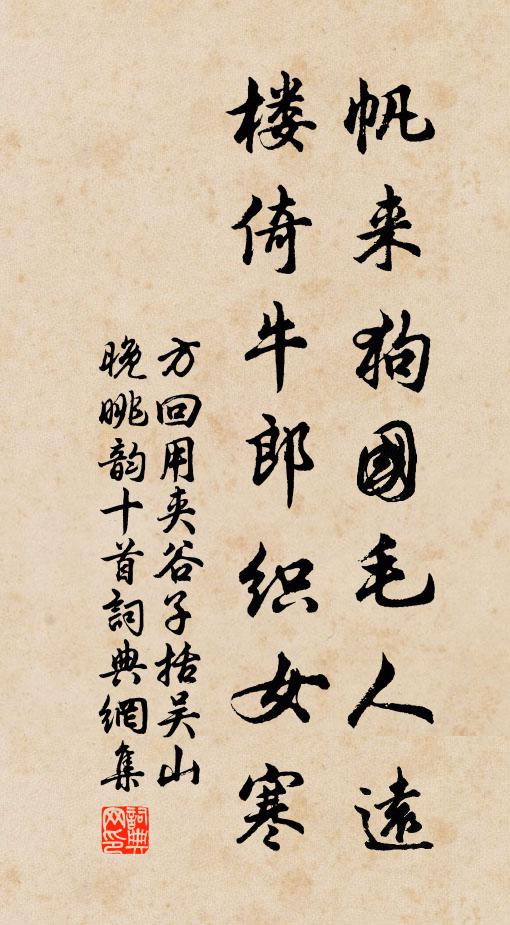 帆来狗國毛人遠
楼倚牛郎织女寒
方回用夹谷子括吴山
晚眺韵十首詞典網集
詞典网印